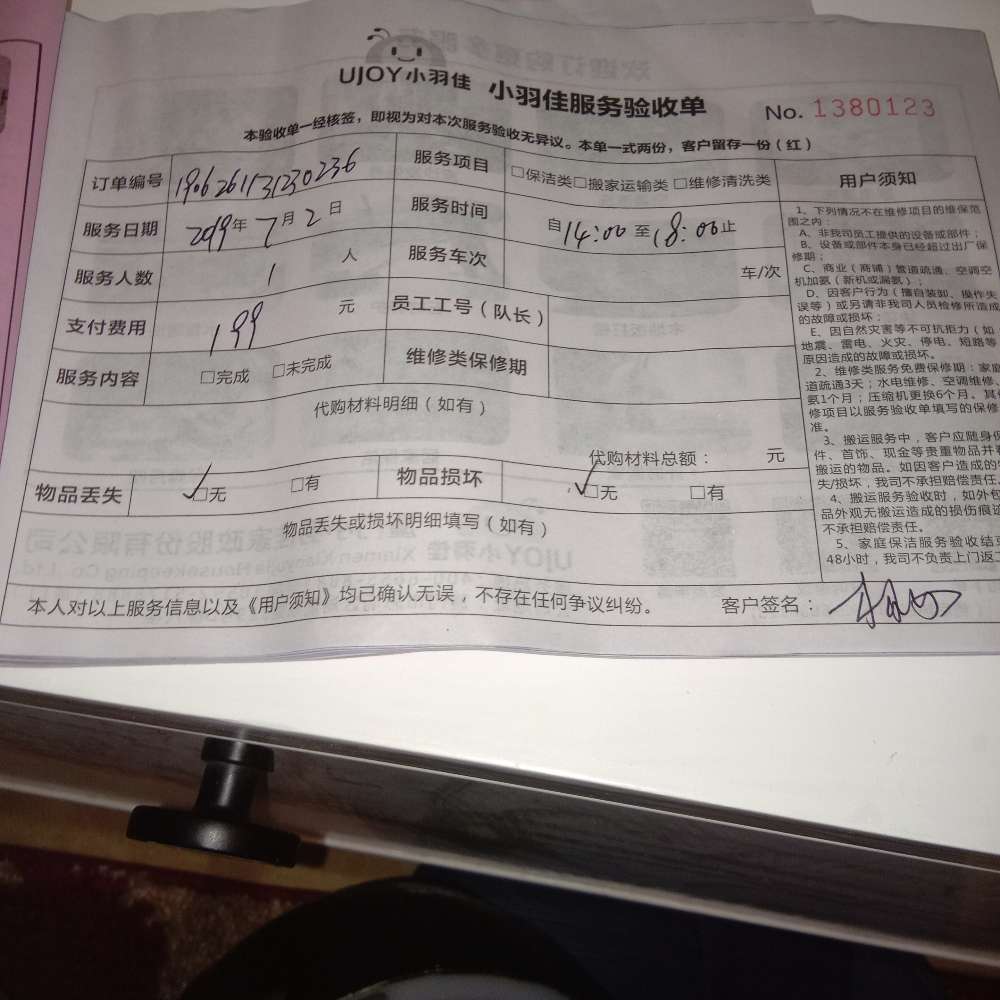 UJOY小羽佳 小羽佳服务验收单 No. 1380123
本验收单一经核签，即视为对本次服务验收无异议。本单一式两份，客户留存一份（红）
订单编号 190626113230236 服务项目 □保洁类□搬家运输类 □维修清洗类
服务日期 2019年7月2日 服务时间 自14:00至18:00止
服务人数 1人 服务车次 车/次
支付费用 199元 员工工号（队长）
服务内容 □完成 □未完成 维修类保修期
代购材料明细（如有）
代购材料总额： 元
物品丢失 ✓□无 □有 物品损坏 ✓□无 □有
物品丢失或损坏明细填写（如有）
本人对以上服务信息以及《用户须知》均已确认无误，不存在任何争议纠纷。 客户签名：
用户须知
1、下列情况不在维修项目的维保范
围之内：
A、非我司员工提供的设备或部件；
B、设备或部件本身已经超过出厂保
修期；
C、商业（商铺）管道疏通、空调空
机加氨（新机或漏氨）；
D、因客户行为（擅自装卸、操作失
误等）或另请非我司人员检修所造成
的故障或损坏；
E、因自然灾害等不可抗拒力（如
地震、雷电、火灾、停电、短路等
原因造成的故障或损坏。
2、维修类服务免费保修期：家庭
道疏通3天；水电维修、空调维修、
氨1个月；压缩机更换6个月。其
修项目以服务验收单填写的保修
准。
3、搬运服务中，客户应随身保
件、首饰、现金等贵重物品并
搬运的物品。如因客户造成的
失/损坏，我司不承担赔偿责任。
4、搬运服务验收时，如外包
品外观无搬运造成的损伤痕迹
不承担赔偿责任。
5、家庭保洁服务验收结束
48小时，我司不负责上门返工